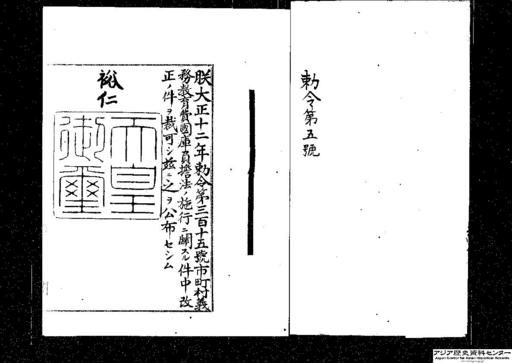 勅令第五號
朕大正十二年勅令第三百十五號市町村義
務教育費國庫負擔法ノ施行ニ關スル件中改
正ノ件ヲ裁可シ茲ニ之ヲ公布セシム
裕仁
天皇
御璽
アジア歴史資料センター
Japan Center for Asian Historical Records